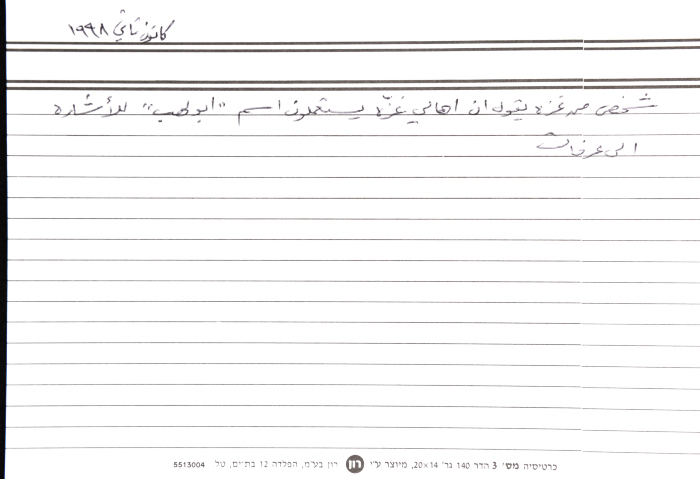 كانون ثاني ١٩٩٨
شخص من غزه يقول ان اهالي غزّه يستعملون اسم "ابو لهب" للأشاره
الى عرفات
כרטיסיה מס׳ 3 הדר 140 גר׳ 20×14, מיוצר ע״י רון רון בע״מ, הפלדה 12 בת־ים, טל 5513004